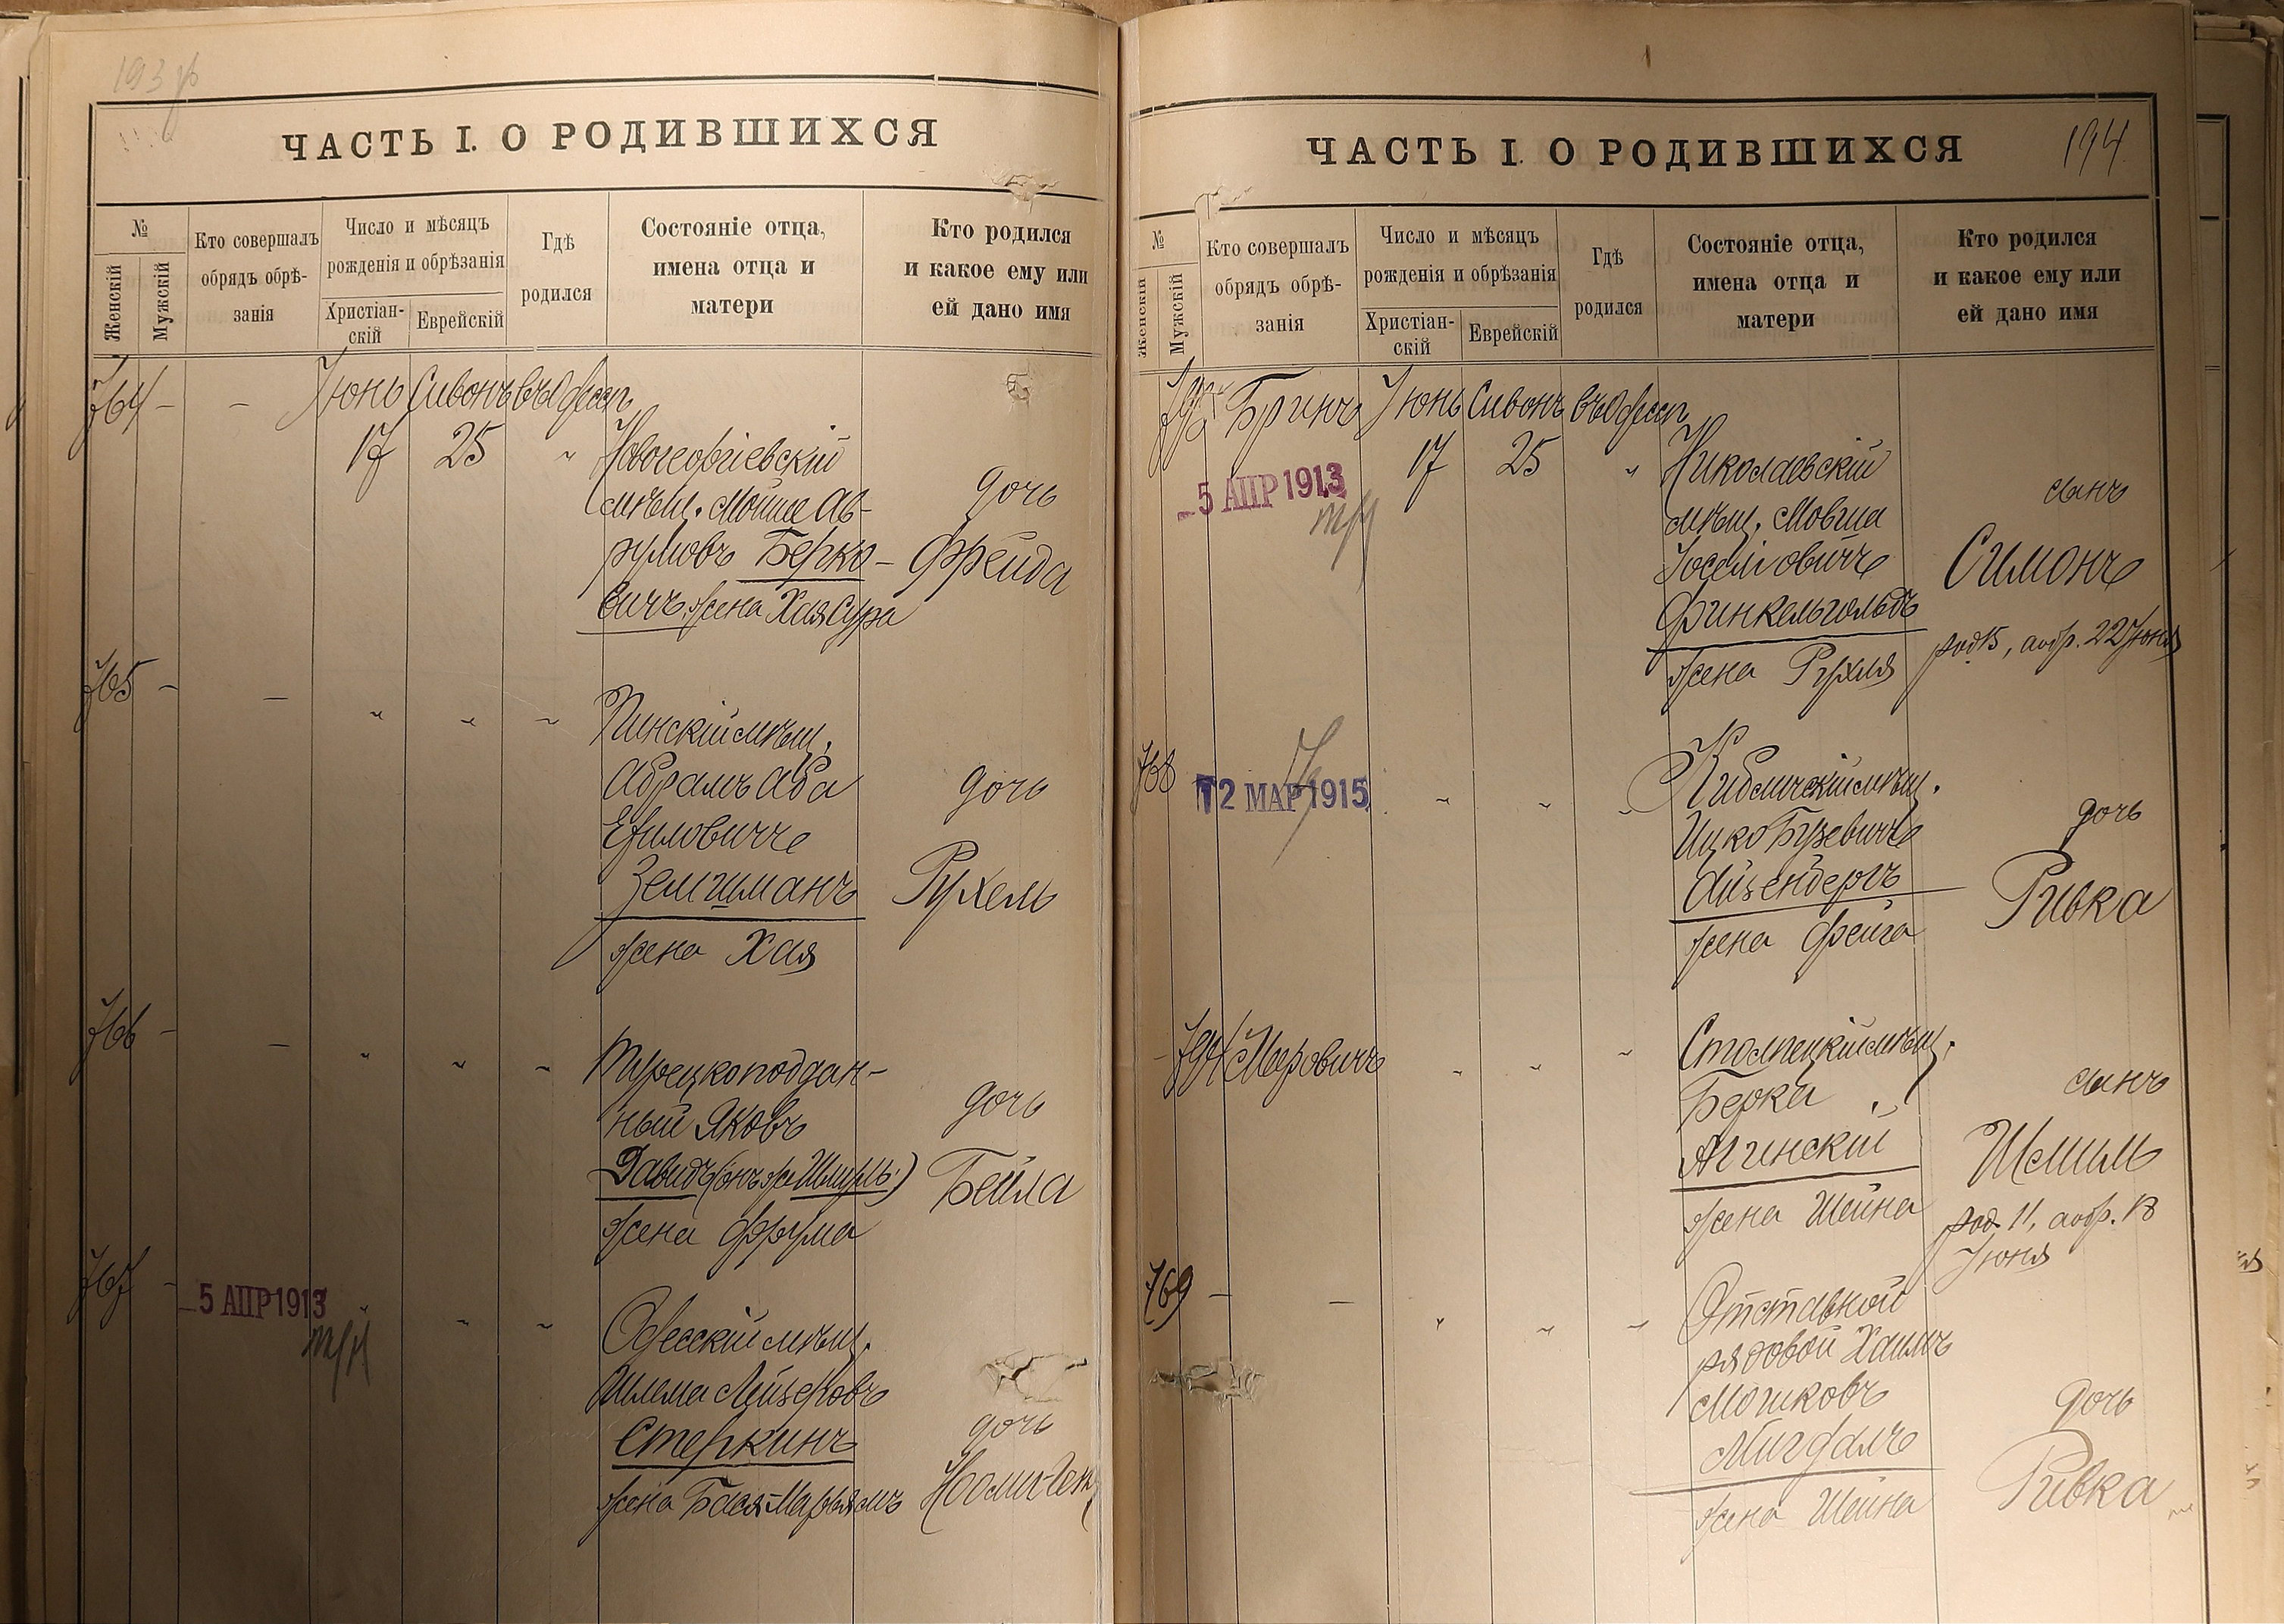 193 об
ЧАСТЬ I. О РОДИВШИХСЯ
№
Женскій
Мужскій
Кто совершалъ
обрядъ обрѣ-
занія
Число и мѣсяцъ
рожденія и обрѣзанія
Христіан-
скій
Еврейскій
Гдѣ
родился
Состояніе отца,
имена отца и
матери
Кто родился
и какое ему или
ей дано имя
764 - - Іюнь Сивонъ въ Одессѣ
17 25 " Новогеоргіевскій
мѣщ. Мойше Ав- дочь
румовъ Берко- Фрейда
вичъ жена Хая Сура
765 - - " " " Пинскій мѣщ.
Абрамъ Аба дочь
Ефимовичъ
Зелигманъ Рухель
жена Хая
766 - - " " " Турецкоподдан-
ный Яковъ дочь
Давидъ (онъ же Шмуль) Бейла
жена Фрума
767 -
-5 АПР 1913 " " " Одесскій мѣщ.
Шлема Лейзеровъ
Стеркинъ дочь
жена Бася-Марьямъ
ЧАСТЬ I. О РОДИВШИХСЯ
194
№
Женскій
Мужскій
Кто совершалъ
обрядъ обрѣ-
занія
Число и мѣсяцъ
рожденія и обрѣзанія
Христіан-
скій
Еврейскій
Гдѣ
родился
Состояніе отца,
имена отца и
матери
Кто родился
и какое ему или
ей дано имя
Бринъ Іюнь Сивонъ въ Одессѣ
-5 АПР 1913 17 25 " Николаевскій
мѣщ. Мовша сынъ
Іосіовичъ Симонъ
Финкельгольдъ
жена Рухля род. 15, а обр. 22 Іюня
768
12 МАР 1915 " " " Кибличскій мѣщ.
Ицко Бузевичъ дочь
Айзенбергъ Ривка
жена Фейга
- 794 Меровичъ " " " Столпецкій мѣщ.
Берка сынъ
Агинскій Шмиль
жена Шейна род. 11, а обр. 18
Іюня
769 - - " " " Отставной
рядовой Хаимъ
Мошковъ дочь
Мигдалъ Ривка
жена Шейна